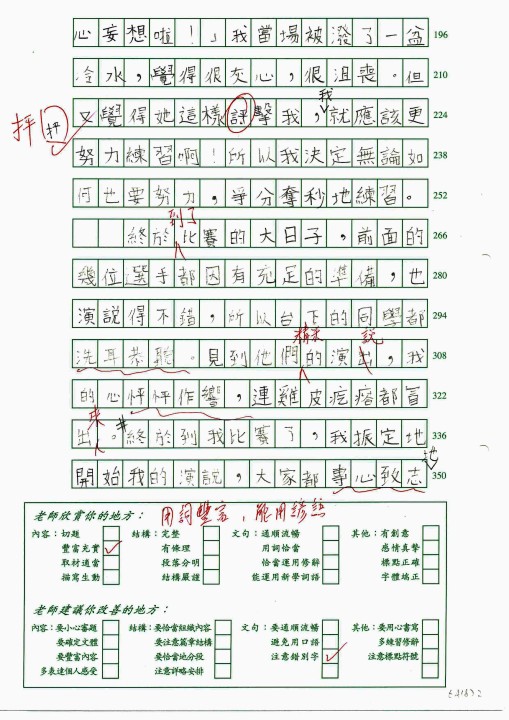 心妄想啦！」我當場被潑了一盆 196
冷水，覺得很灰心，很沮喪。但 210
我
抨 抨 又覺得她這樣評擊我，就應該更 224
努力練習啊！所以我決定無論如 238
何也要努力，爭分奪秒地練習。 252
到了
終於比賽的大日子，前面的 266
幾位選手都因有充足的準備，也 280
演說得不錯，所以台下的同學都 294
精采 說
洗耳恭聽。見到他們的演出，我 308
的心怦怦作響，連雞皮疙瘩都冒 322
來
出。終於到我比賽了，我振定地 336
地
開始我的演說，大家都專心致志 350
用詞豐富，能用諺語
老師欣賞你的地方：
內容：切題 結構：完整 文句：通順流暢 其他：有創意
豐富充實 有條理 用詞恰當 感情真摯
取材適當 段落分明 恰當運用修辭 標點正確
描寫生動 結構嚴謹 能運用新學詞語 字體端正
老師建議你改善的地方：
內容：要小心審題 結構：要恰當組織內容 文句：要通順流暢 其他：要用心書寫
要確定文體 要注意篇章結構 避免用口語 多練習修辭
要豐富內容 要恰當地分段 注意錯別字 注意標點符號
多表達個人感受 注意詳略安排